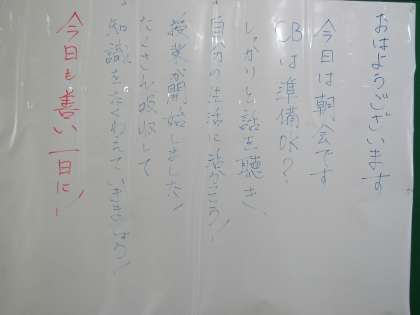 おはようございます
今日は朝会です
CBは準備OK？
しっかりと話を聴き、
自分の生活に活かそう！
授業が開始しました！
たくさん吸収して
知識をたくわえていきましょう！
今日も善い一日に！